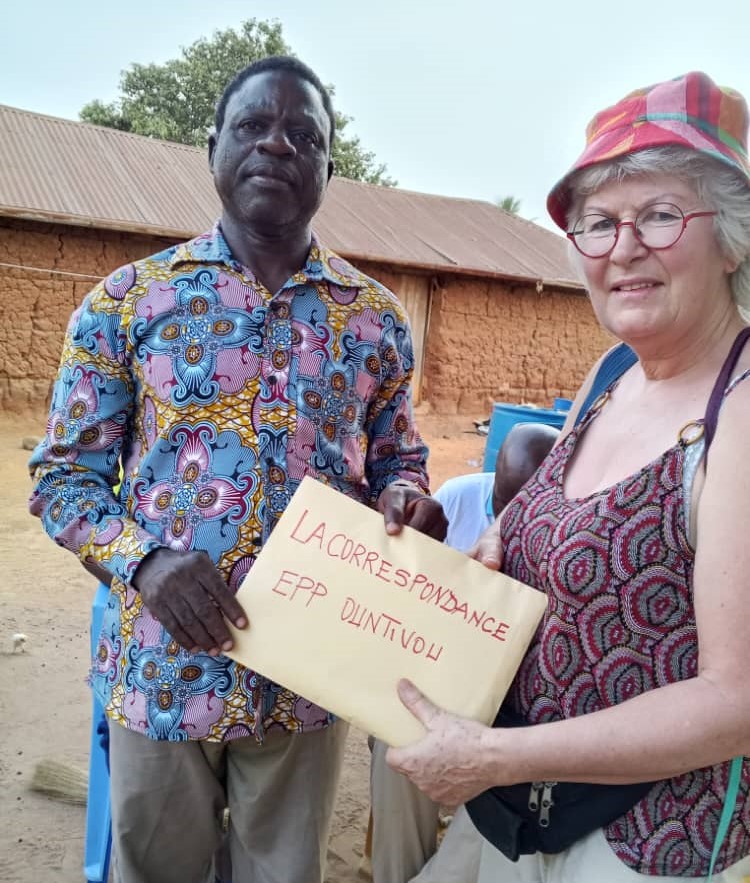 LA CORRESPONDANCE
EPP OUNTIVOU